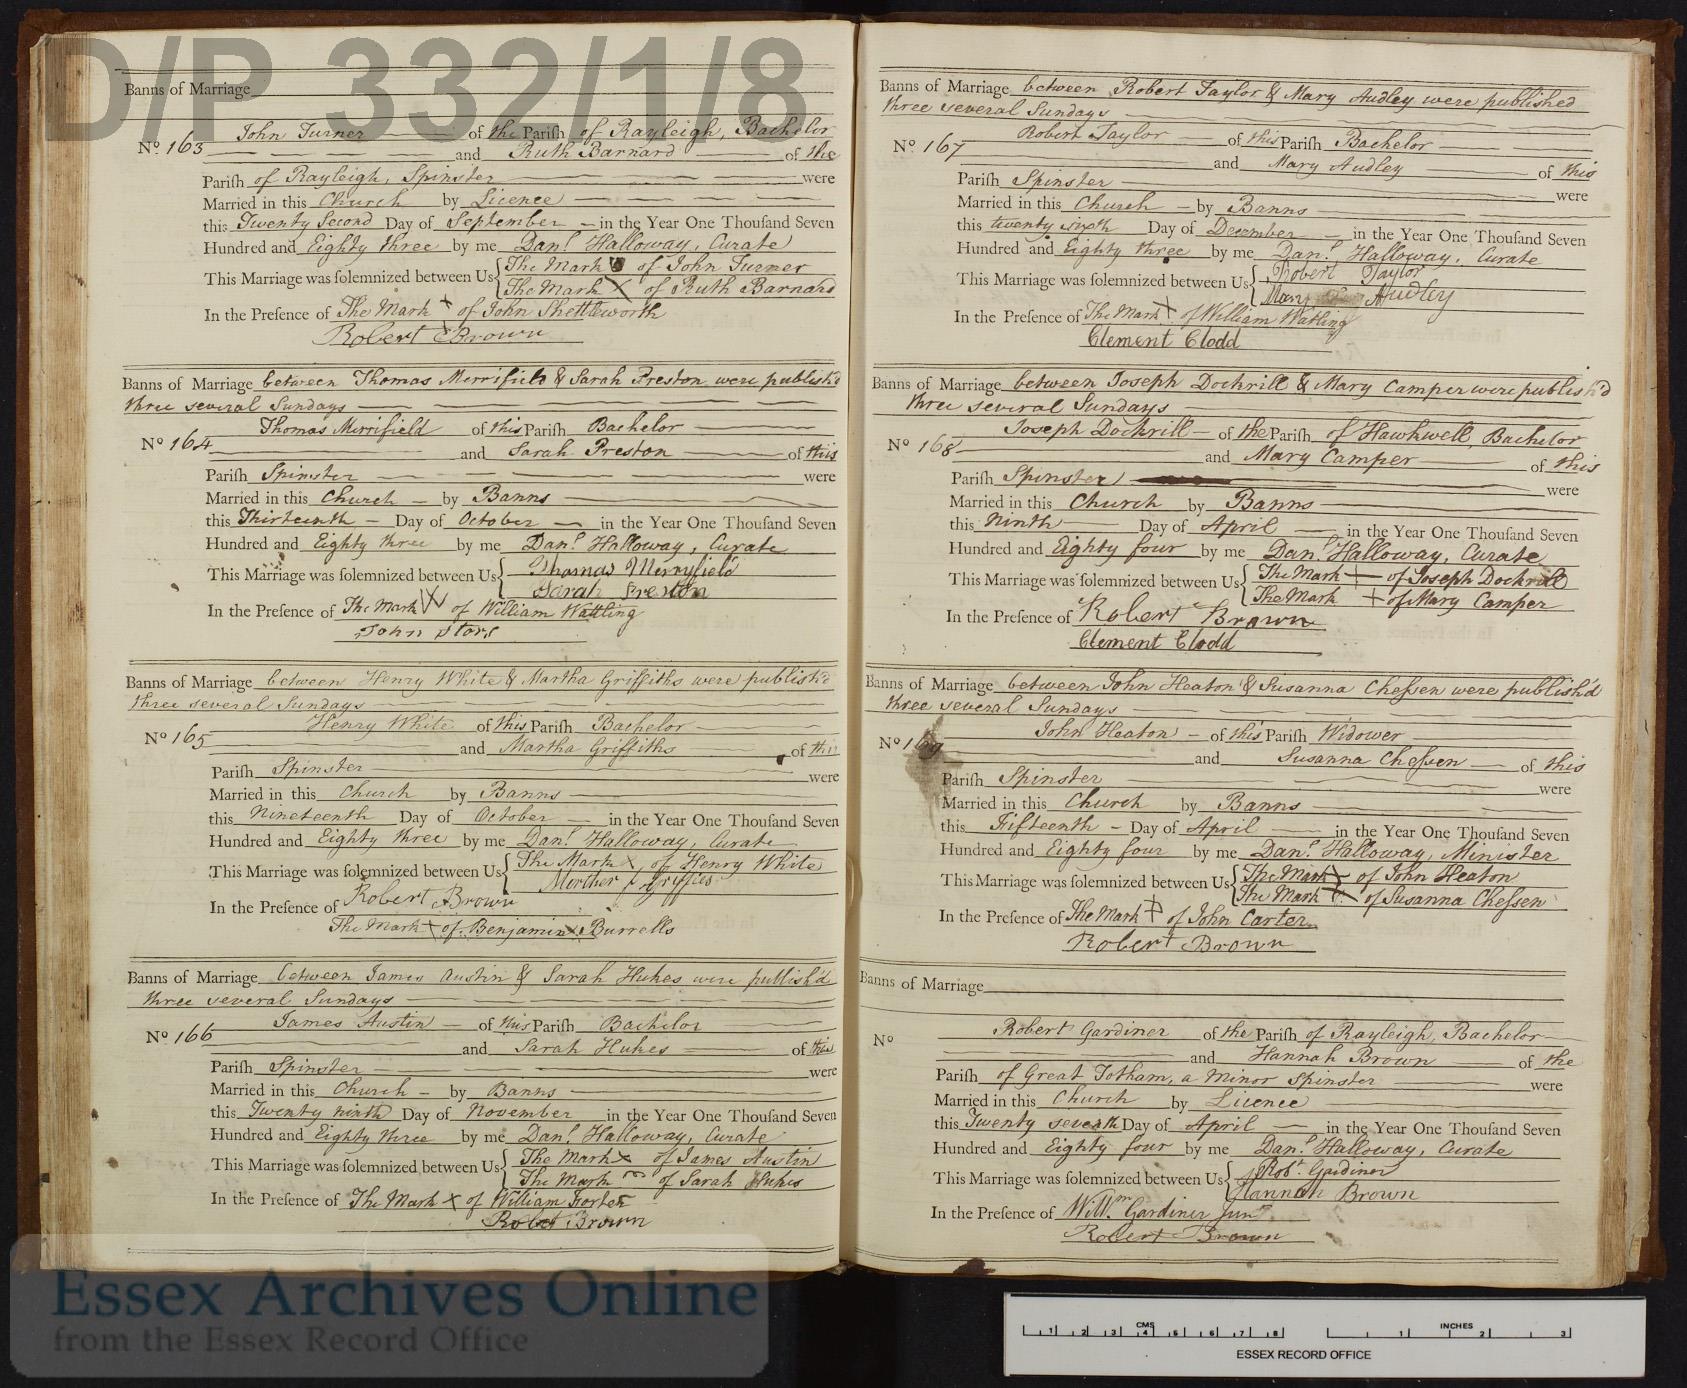 D/P 332/1/8
Banns of Marriage
No. 163 John Turner of the Parish of Rayleigh, Bachelor
and Ruth Barnard of the
Parish of Rayleigh, Spinster were
Married in this Church by Licence
this Twenty Second Day of September in the Year One Thousand Seven
Hundred and Eighty three by me Danl. Halloway, Curate
This Marriage was solemnized between Us The Mark of John Turner
The Mark X of Ruth Barnard
In the Presence of The Mark + of John Shettleworth
Robert Brown
Banns of Marriage between Thomas Merrifield & Sarah Preston were publish'd
three several Sundays
No. 164 Thomas Merrifield of this Parish Bachelor
and Sarah Preston of this
Parish Spinster were
Married in this Church by Banns
this Thirteenth Day of October in the Year One Thousand Seven
Hundred and Eighty three by me Danl. Halloway, Curate
This Marriage was solemnized between Us Thomas Merryfield
Sarah Preston
In the Presence of The Mark W of William Wattling
John Stors
Banns of Marriage between Henry White & Martha Griffiths were publish'd
three several Sundays
No. 165 Henry White of this Parish Bachelor
and Martha Griffiths of this
Parish Spinster were
Married in this Church by Banns
this Nineteenth Day of October in the Year One Thousand Seven
Hundred and Eighty three by me Danl. Halloway, Curate
This Marriage was solemnized between Us The Mark X of Henry White
Merther Griffies
In the Presence of Robert Brown
The Mark X of Benjamin Burrells
Banns of Marriage between James Austin & Sarah Hukes were publish'd
three several Sundays
No. 166 James Austin of this Parish Bachelor
and Sarah Hukes of this
Parish Spinster were
Married in this Church by Banns
this Twenty ninth Day of November in the Year One Thousand Seven
Hundred and Eighty three by me Danl. Halloway, Curate
This Marriage was solemnized between Us The Mark X of James Austin
The Mark of Sarah Hukes
In the Presence of The Mark X of William Forter
Robert Brown
Banns of Marriage between Robert Taylor & Mary Audley were published
three several Sundays
No. 167 Robert Taylor of this Parish Bachelor
and Mary Audley of this
Parish Spinster were
Married in this Church by Banns
this twenty sixth Day of December in the Year One Thousand Seven
Hundred and Eighty three by me Danl. Halloway, Curate
This Marriage was solemnized between Us Robert Taylor
Mary Audley
In the Presence of The Mark + of William Watling
Clement Clodd
Banns of Marriage between Joseph Dockrill & Mary Camper were publish'd
three several Sundays
No. 168 Joseph Dockrill of the Parish of Hawkwell, Bachelor
and Mary Camper of this
Parish Spinster were
Married in this Church by Banns
this Ninth Day of April in the Year One Thousand Seven
Hundred and Eighty four by me Danl. Halloway, Curate
This Marriage was solemnized between Us The Mark + of Joseph Dockrill
The Mark + of Mary Camper
In the Presence of Robert Brown
Clement Clodd
Banns of Marriage between John Heaton & Susanna Chessen were publish'd
three several Sundays
No. 169 John Heaton of this Parish Widower
and Susanna Chessen of this
Parish Spinster were
Married in this Church by Banns
this Fifteenth Day of April in the Year One Thousand Seven
Hundred and Eighty four by me Danl. Halloway, Minister
This Marriage was solemnized between Us The Mark X of John Heaton
The Mark X of Susanna Chessen
In the Presence of The Mark + of John Carter
Robert Brown
Banns of Marriage
No. Robert Gardiner of the Parish of Rayleigh, Bachelor
and Hannah Brown of the
Parish of Great Totham, a Minor Spinster were
Married in this Church by Licence
this Twenty seventh Day of April in the Year One Thousand Seven
Hundred and Eighty four by me Danl. Halloway, Curate
This Marriage was solemnized between Us Robt. Gardiner
Hannah Brown
In the Presence of Willm. Gardiner Junr.
Robert Brown
Essex Archives Online
from the Essex Record Office
CMS
1 2 3 4 5 6 7 8
INCHES
1 2 3
ESSEX RECORD OFFICE